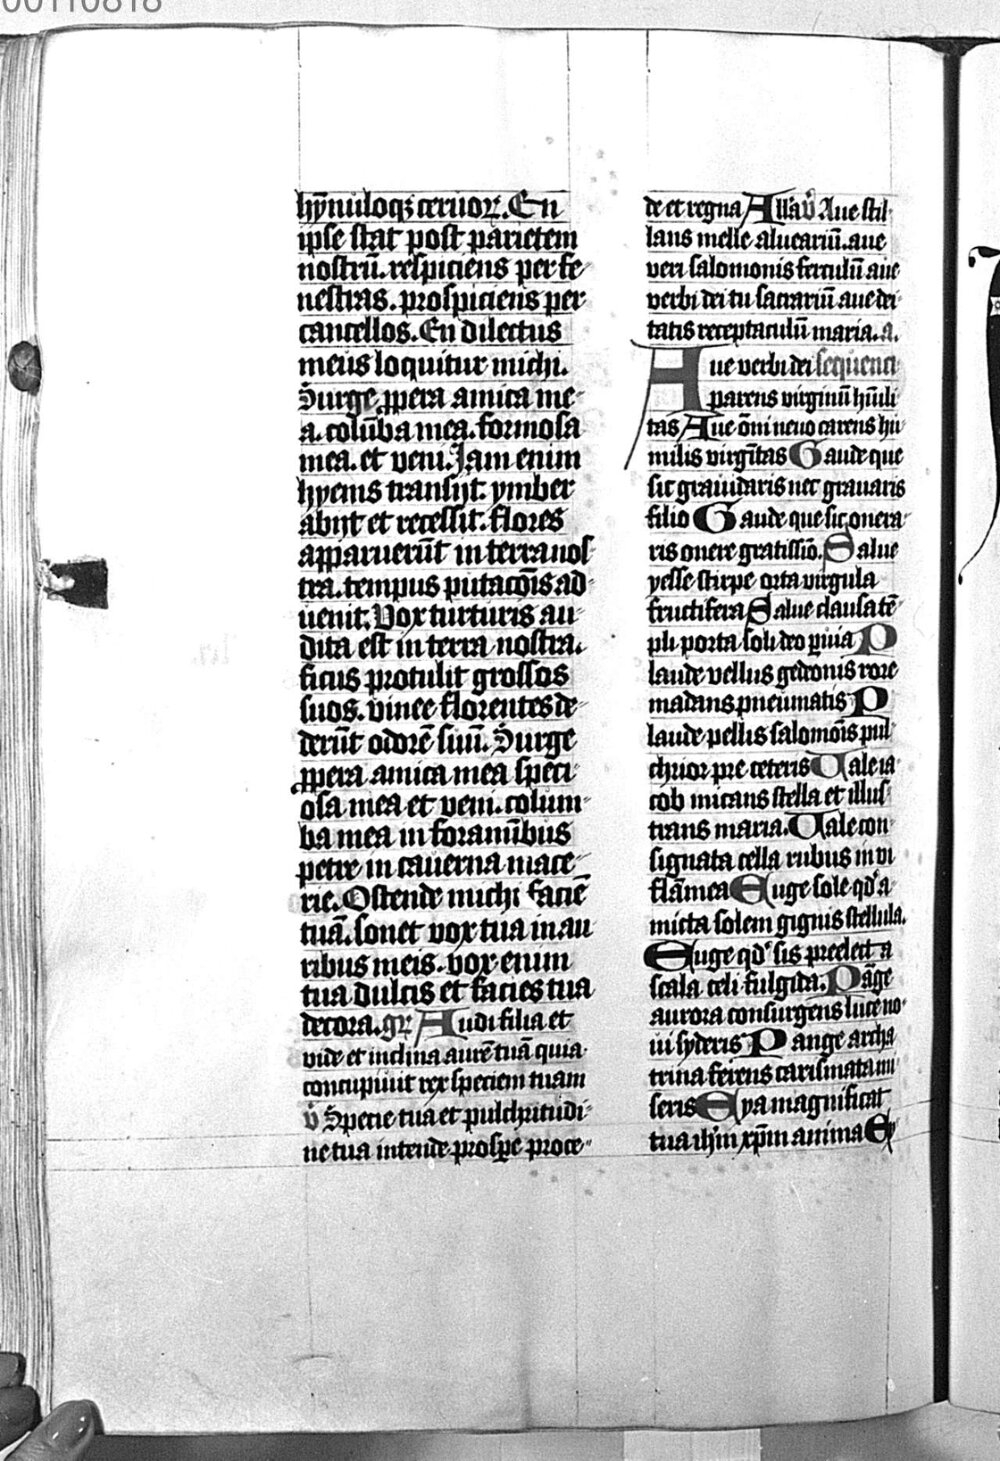 00110818
hy̅nuloqꝫ ceruoꝝ. En
ipse stat post parietem
nostrū. respiciens per fe-
nestras. prospiciens per
cancellos. En dilectus
meus loquitur michi.
Surge ꝓpera amica me-
a. colūba mea. formosa
mea. et veni. Jam enim
hyems transijt. ymber
abijt et recessit. flores
apparuerūt in terra nos-
tra. tempus putacōis ad-
uenit. Vox turturis au-
dita est in terra nostra.
ficus protulit grossos
suos. vinee florentes de-
derūt odorē suū. Surge
ꝓpera amica mea speci-
osa mea et veni. colum-
ba mea in foramībus
petre in cauerna mace-
rie. Ostende michi faciē
tuā. sonet vox tua in au-
ribus meis. vox enim
tua dulcis et facies tua
decora. gꝛ̄ Audi filia et
vide et inclina aurē tuā quia
concupiuit rex speciem tuam
v̄ Specie tua et pulchritudi-
ne tua intende prospe̅ proce-
de et regna Alla v̄ Aue stil-
lans melle aluearиū. aue
veri salomonis ferculū aue
verbi dei tu sacrariū aue dei-
tatis receptaculū maria. a.
Aue verbi dei sequenci
parens virginū hūili-
tas Aue ōni neuo carens hu-
milis virgītas Gaude que
sic grauidaris nec grauaris
filio Gaude que sic onera-
ris onere gratissīo. Salue
yesse stirpe orta virgula
fructifera Salue clausa tē-
pli porta soli deo ꝑuia P
laude vellus gedeonis rore
madans pneumatis P
laude pellis salomōis pul-
chrior pre ceteris Vale ia-
cob micans stella et illus-
trans maria. Vale con-
signata cella rubus in vi
flāmea Euge sole qd̕ a-
micta solem gignis stellula.
Euge qd̕ sis preelecta
scala celi fulgida. Pāge
aurora consurgens luce no-
ui syderis Pange archa
trina ferens carismata mi-
seris Eya magnificat
tua ih̅m xp̅m anima Ey